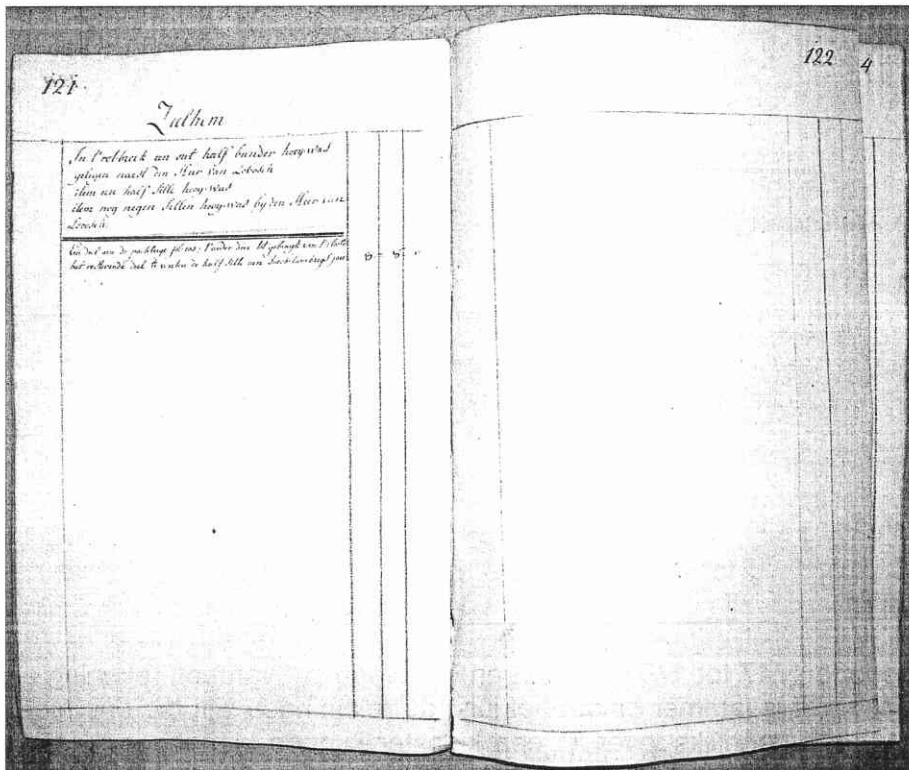 121.
Zulhem
In t'rotbroek een out half bunder hooy-was
gelegen naest den Heer van Lobosch
item een half sille hooy-was
item nog negen sillen hooy-was by den Heer van
Lobosch.
een deel aen de pachtinge fol: t'ander deel
het resterende deel te weten de half sille aen
8 - 8 -
122
4